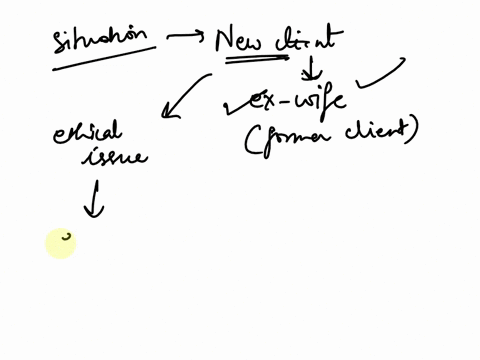 situation → New client
ex-wife
(former client)
ethical
issue